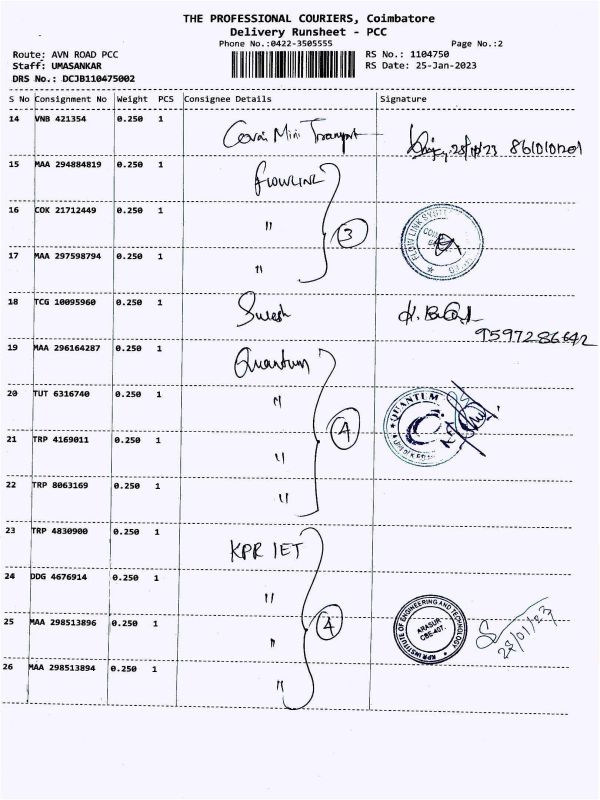 THE PROFESSIONAL COURIERS, Coimbatore
Delivery Runsheet - PCC
Phone No.:0422-3505555
Page No.:2
Route: AVN ROAD PCC
RS No.: 1104750
Staff: UMASANKAR
RS Date: 25-Jan-2023
DRS No.: DCJB110475002
S No Consignment No Weight PCS Consignee Details Signature
14 VNB 421354 0.250 1 Mini Transport 8610101201
15 MAA 294884819 0.250 1 FLOWLINK
16 COK 21712449 0.250 1 " 3
17 MAA 297598794 0.250 1 "
FLOW LINK SYSTEMS
18 TCG 10095960 0.250 1 Suresh
9597286642
19 MAA 296164287 0.250 1 Quantum
20 TUT 6316740 0.250 1 "
QUANTUM
21 TRP 4169011 0.250 1 " 4
22 TRP 8063169 0.250 1 "
23 TRP 4830900 0.250 1 KPR IET
24 DDG 4676914 0.250 1 "
25 MAA 298513896 0.250 1 " 4
KPR INSTITUTE OF ENGINEERING AND TECHNOLOGY
ARASUR
CBE-407.
28/01/23
26 MAA 298513894 0.250 1 "